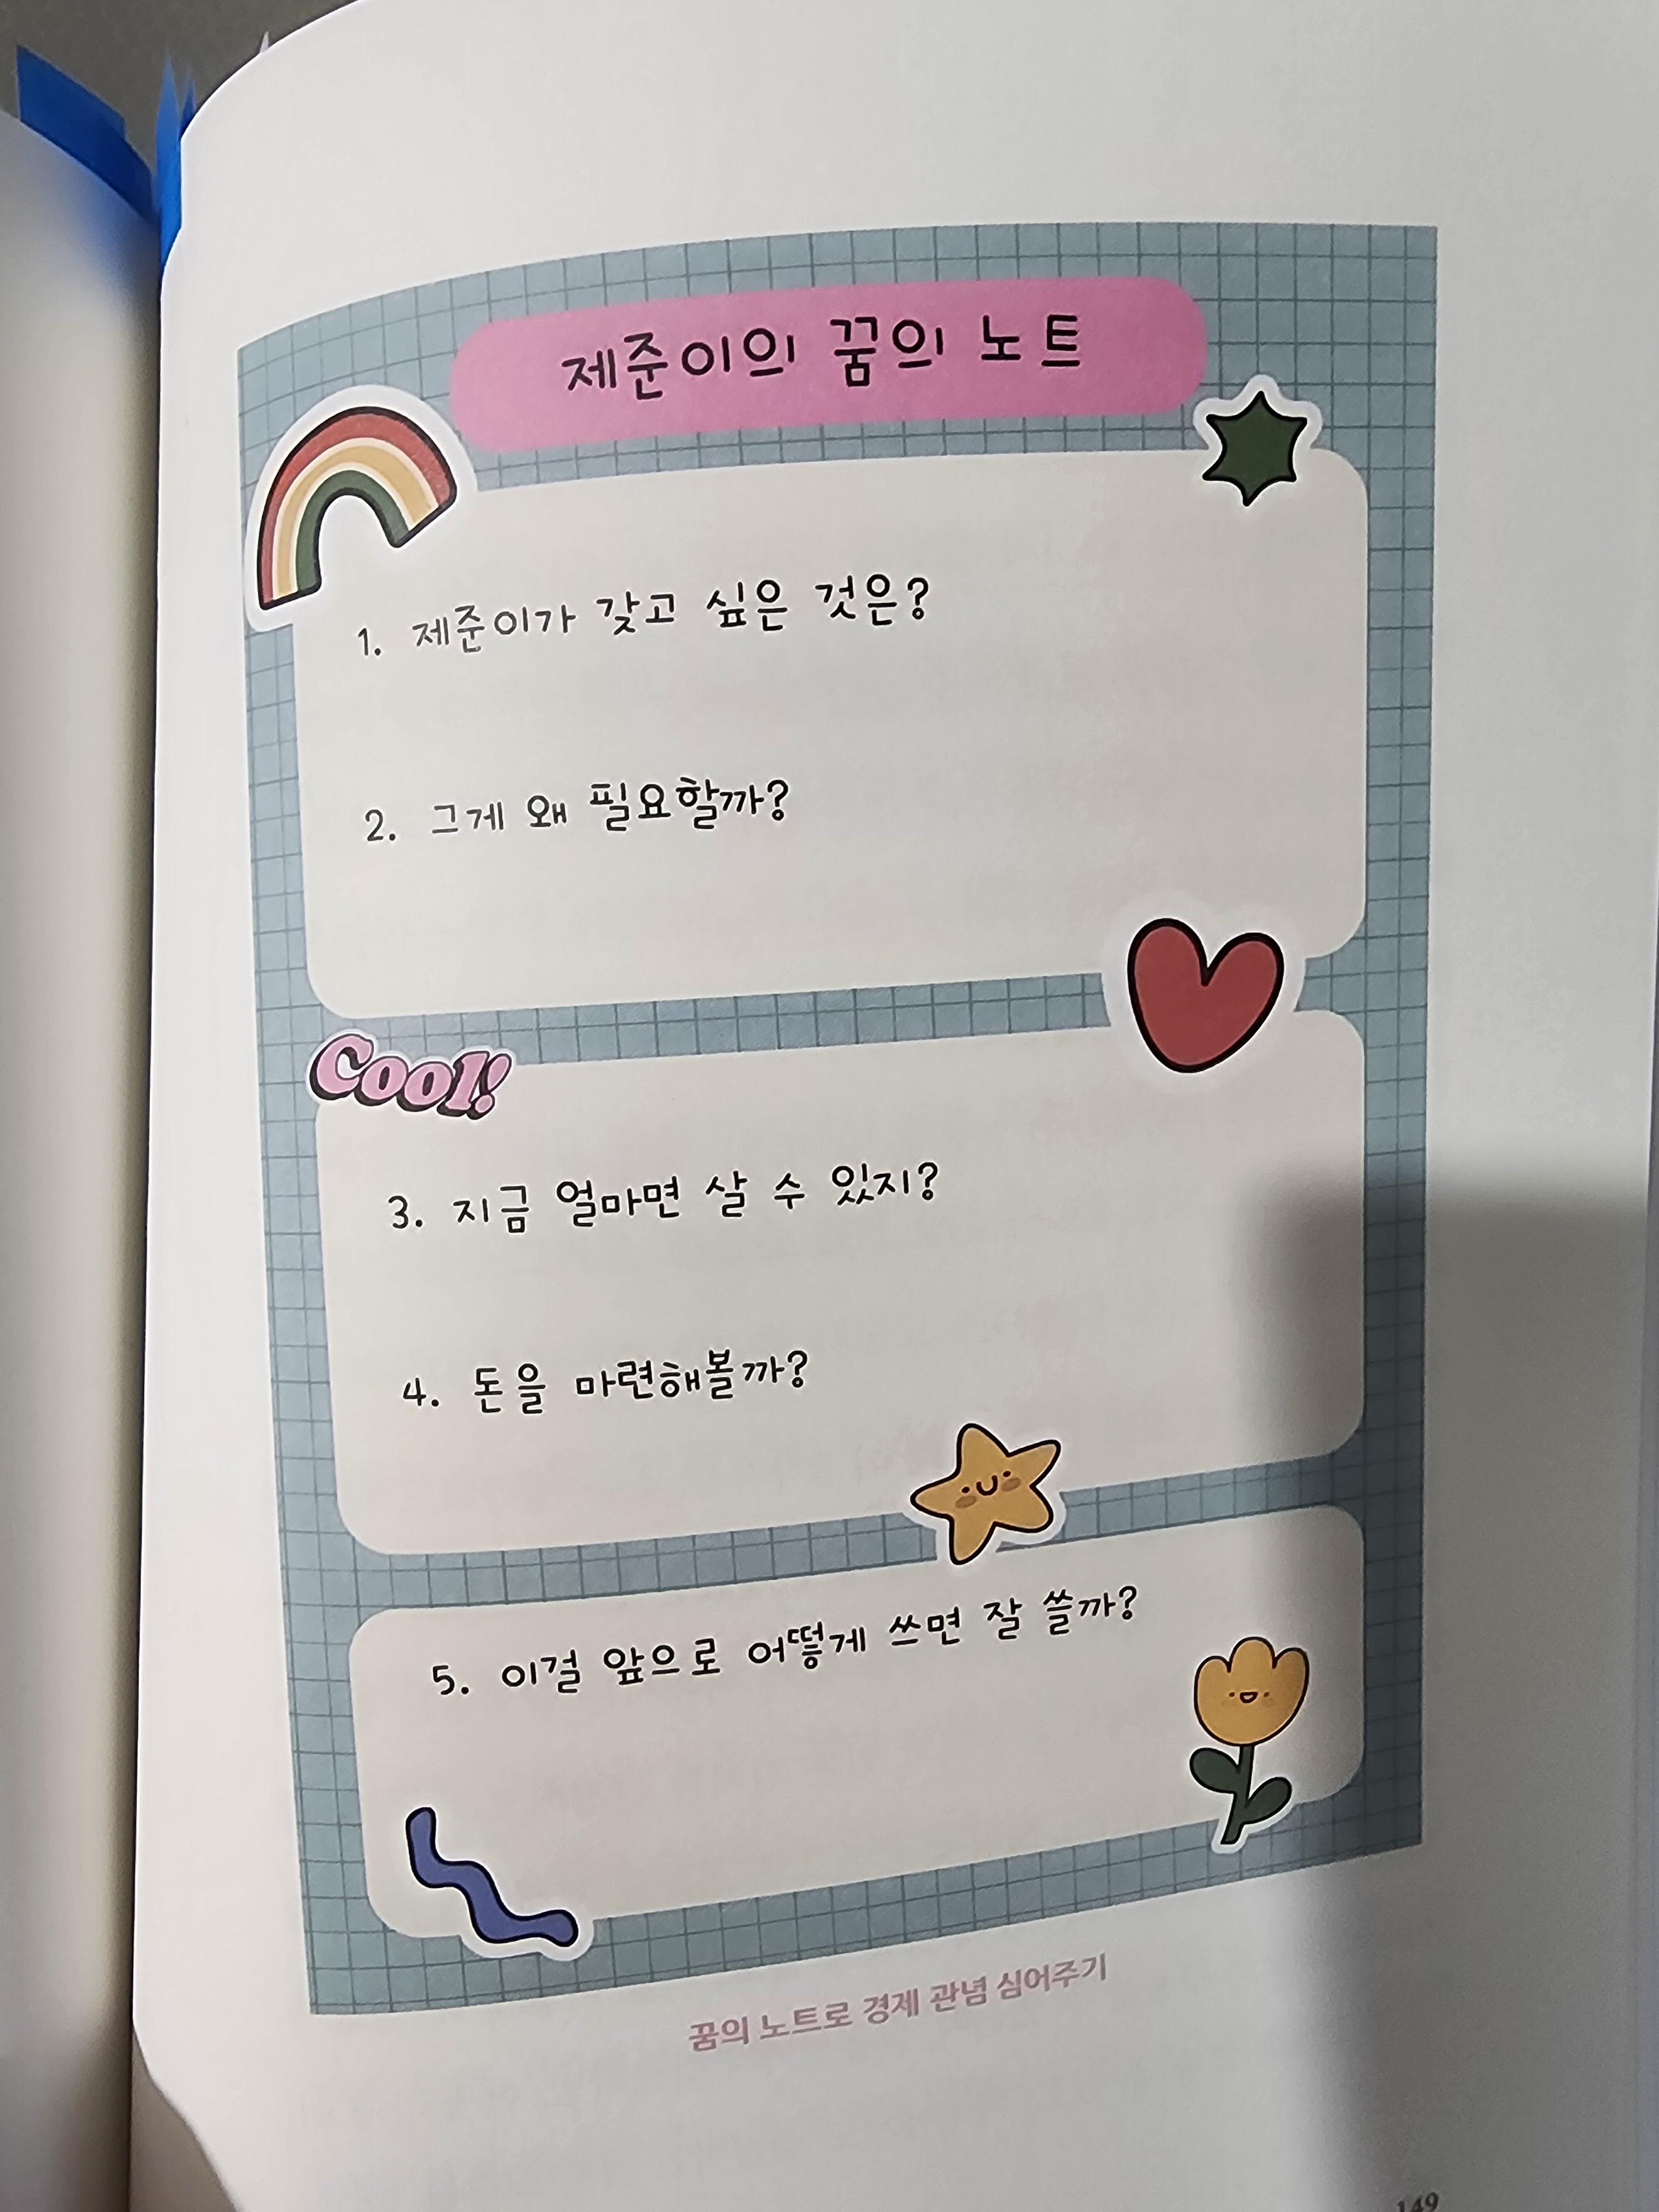 제준이의 꿈의 노트
1. 제준이가 갖고 싶은 것은?
2. 그게 왜 필요할까?
Cool!
3. 지금 얼마면 살 수 있지?
4. 돈을 마련해볼까?
5. 이걸 앞으로 어떻게 쓰면 잘 쓸까?
꿈의 노트로 경제 관념 심어주기
149